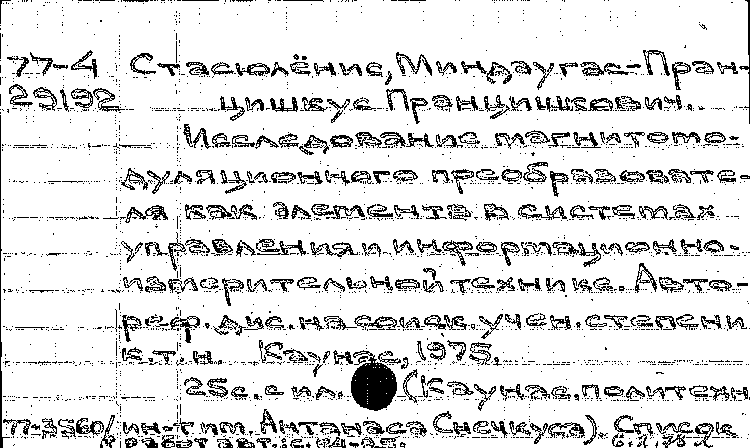 77-4 Стасюлёнис, Миндаугас-Пран-
29192 цишкус Пранцишкович.
Исследование магнитомо-
дуляционного преобразовате-
ля как элемента в системах
управления и информационно-
измерительной технике. Авто-
реф. дис. на соиск. учен. степени
к.т.н. Каунас, 1975.
25с. с ил. (Каунас. политехн
77-3560/ ин-т им. Антанаса Снечкуса). Список
работ авт.: с. 24-25.